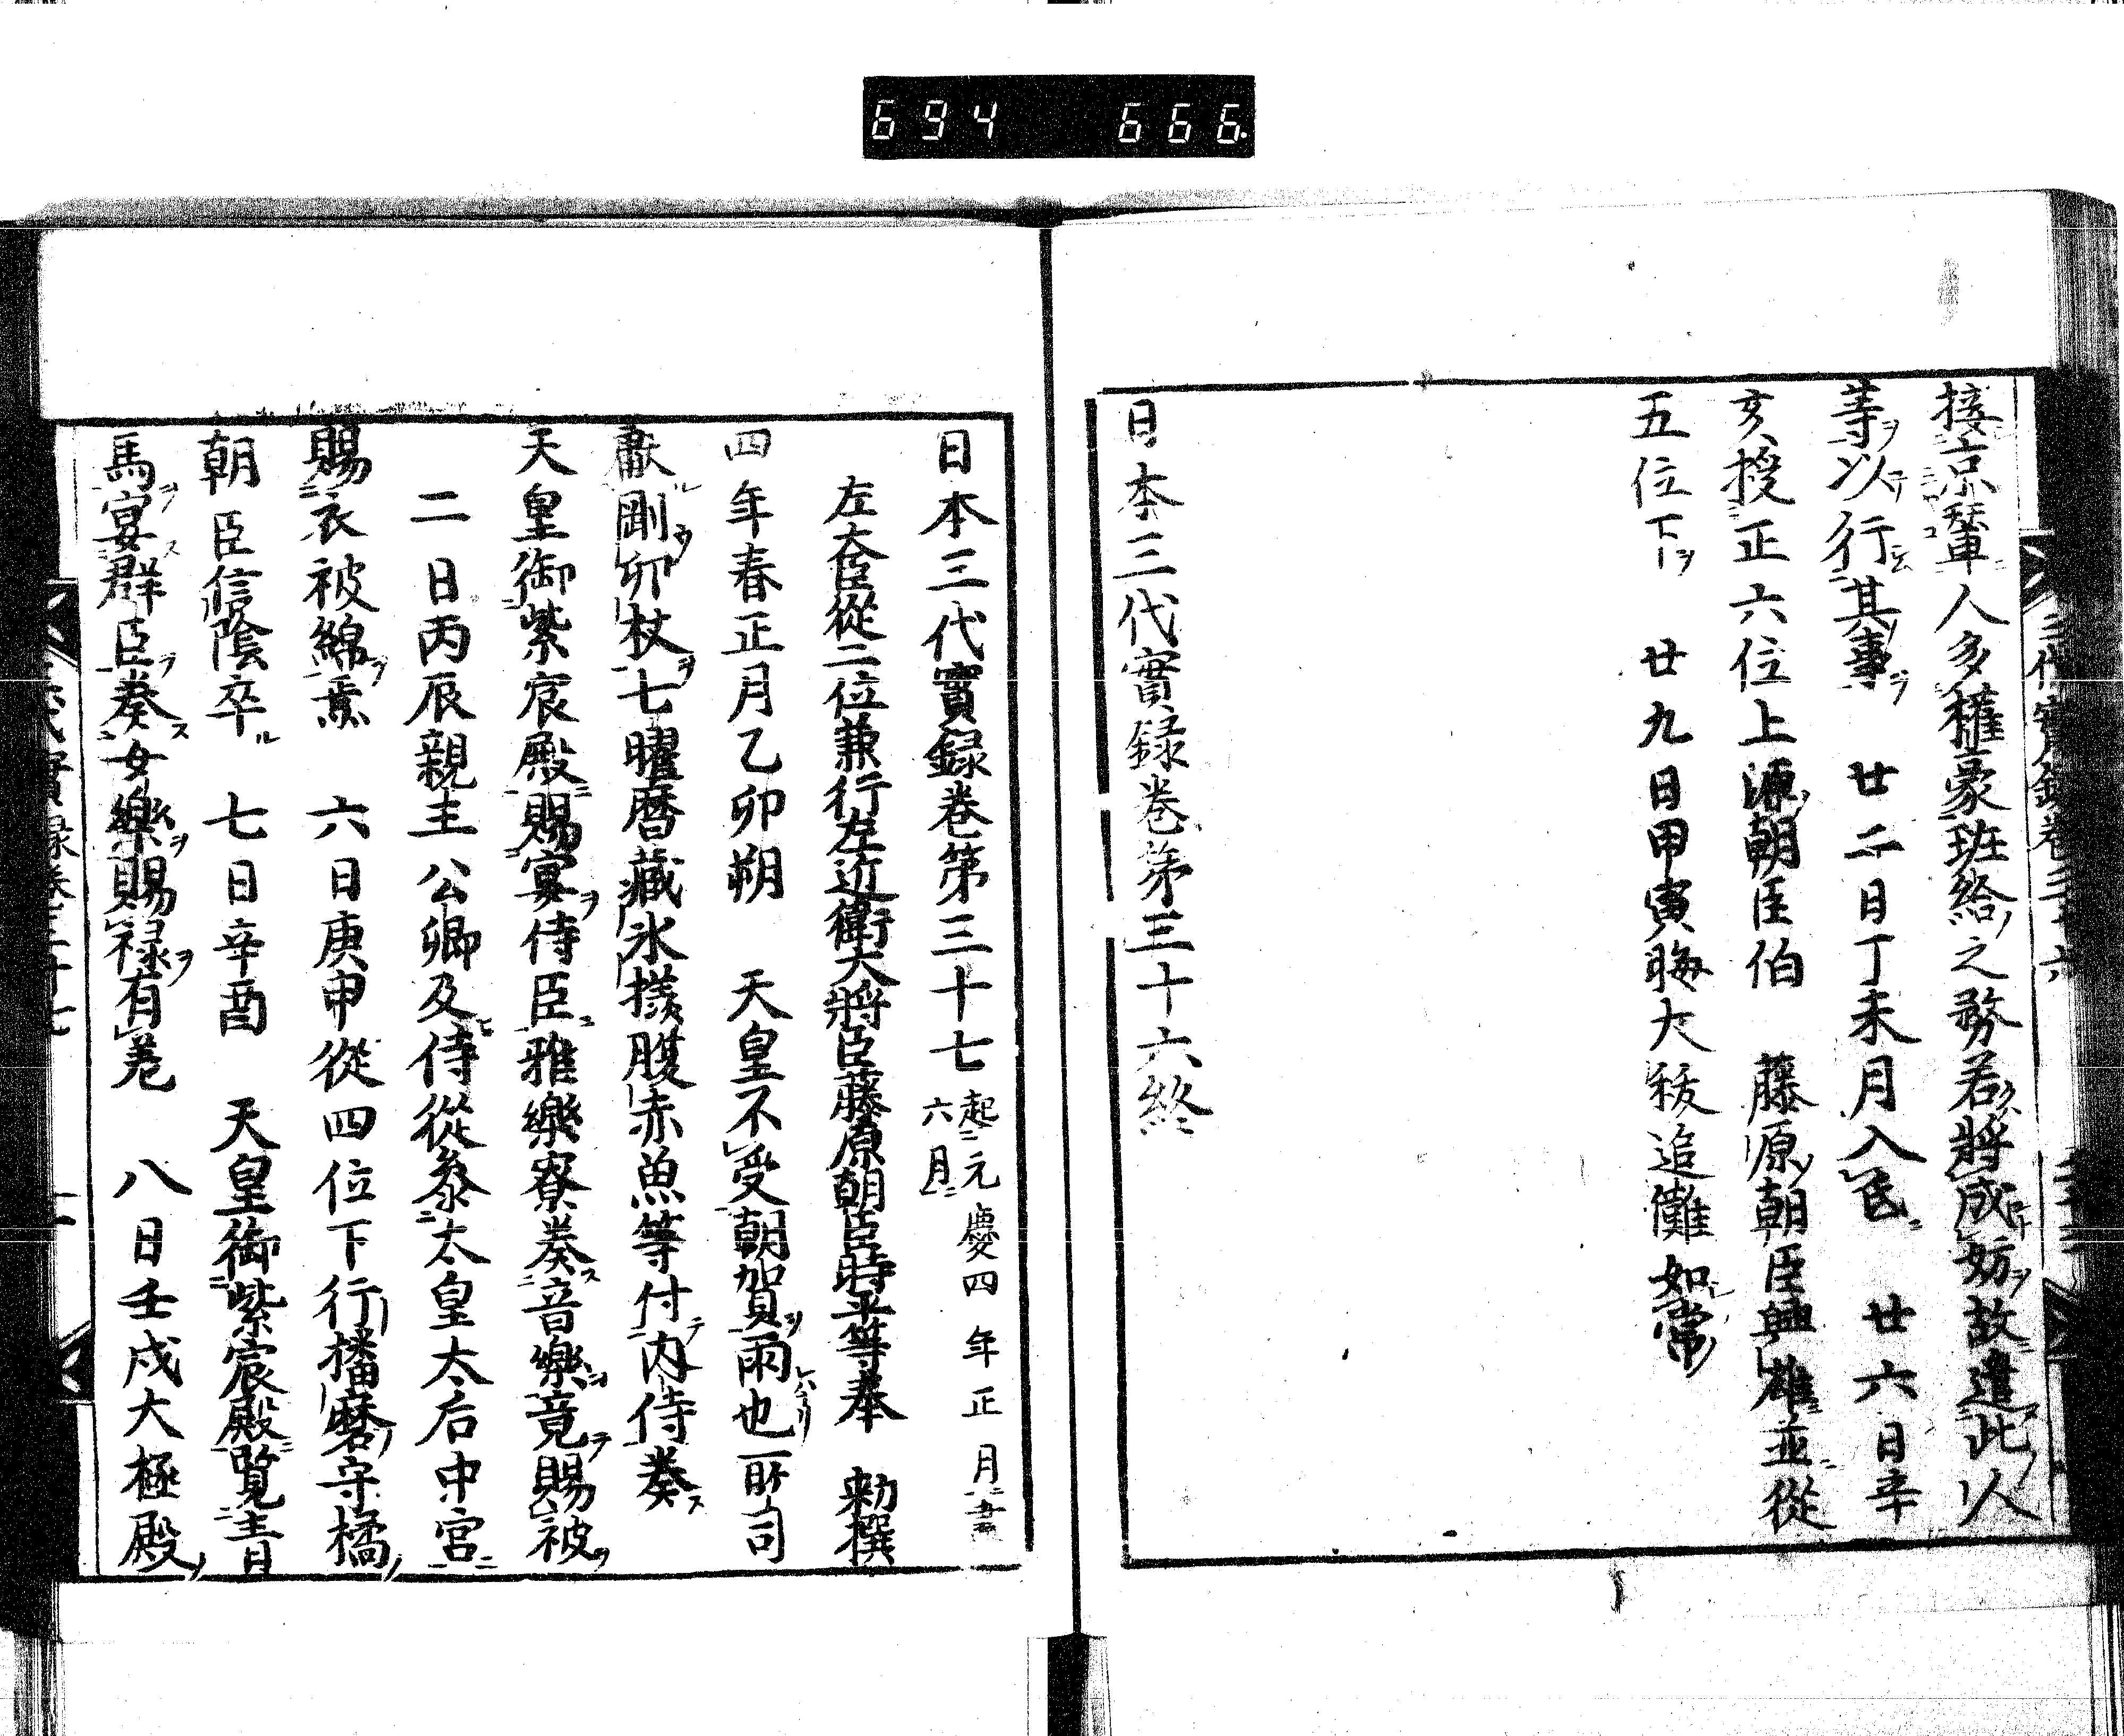 694 666
接京輦人多權豪班給之務若將成妨故遣此人
等以行其事 廿二日丁未月入氐 廿六日辛
亥授正六位上源朝臣伯 藤原朝臣興雄並從
五位下 廿九日甲寅晦大秡追儺如常
日本三代實録卷第三十六終
日本三代實録卷第三十七 起元慶四年正月盡六月
左大臣從二位兼行左近衛大將臣藤原朝臣時平等奉 勅撰
四年春正月乙卯朔 天皇不受朝賀雨也所司
獻剛卯杖七曜曆藏氷㨾腹赤魚等付内侍奏
天皇御紫宸殿賜宴侍臣雅樂寮奏音樂竟賜被
二日丙辰親王公卿及侍從參太皇太后中宮
賜衣被綿焉 六日庚申從四位下行播磨守橘
朝臣信陰卒 七日辛酉 天皇御紫宸殿覽青
馬宴群臣奏女樂賜禄有差 八日壬戌大極殿